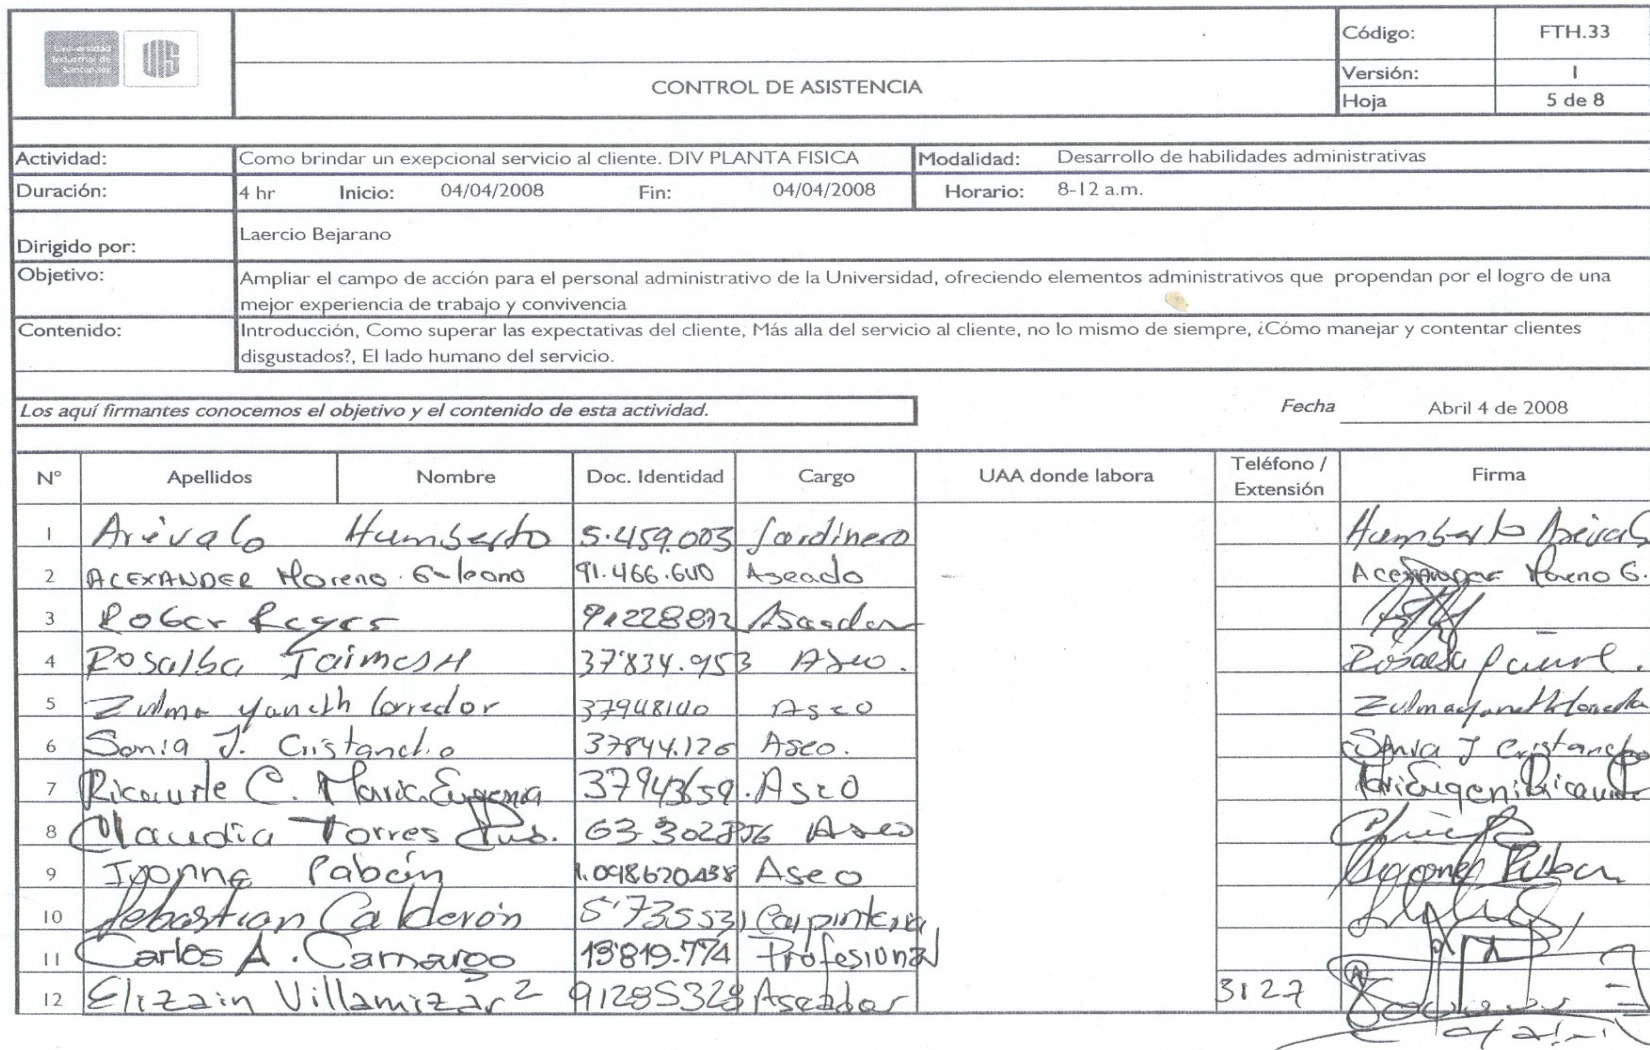 Universidad
Industrial de
Santander
UIS
Código: FTH.33
CONTROL DE ASISTENCIA
Versión: 1
Hoja 5 de 8
Actividad: Como brindar un exepcional servicio al cliente. DIV PLANTA FISICA Modalidad: Desarrollo de habilidades administrativas
Duración: 4 hr Inicio: 04/04/2008 Fin: 04/04/2008 Horario: 8-12 a.m.
Dirigido por: Laercio Bejarano
Objetivo: Ampliar el campo de acción para el personal administrativo de la Universidad, ofreciendo elementos administrativos que propendan por el logro de una
mejor experiencia de trabajo y convivencia
Contenido: Introducción, Como superar las expectativas del cliente, Más alla del servicio al cliente, no lo mismo de siempre, ¿Cómo manejar y contentar clientes
disgustados?, El lado humano del servicio.
Los aquí firmantes conocemos el objetivo y el contenido de esta actividad. Fecha Abril 4 de 2008
N° Apellidos Nombre Doc. Identidad Cargo UAA donde labora Teléfono / Extensión Firma
1 Arévalo Humberto 5.459.003 Jardinero Humberto
2 ACEXANDER Moreno 91.466.640 Aseado Moreno G.
3 Rober Reyes Aseador
4 Rosalba Jaimes H 37'834.953 Aseo.
5 Zulma Yaneth Corredor 37948140 Aseo
6 Sonia J. Cristancho 37844.126 Aseo. Sonia J Cristancho
7 Ricaurte C. Maria Eugenia 37943659. Aseo
8 Claudia Torres Aseo
9 Ivonne Pabón 1.098620438 Aseo
10 Sebastian Calderón 5'735531 Carpinteria
11 Carlos A. Camargo 13'819.774 Profesional
12 Elizain Villamizar 91285328 Aseador 3127